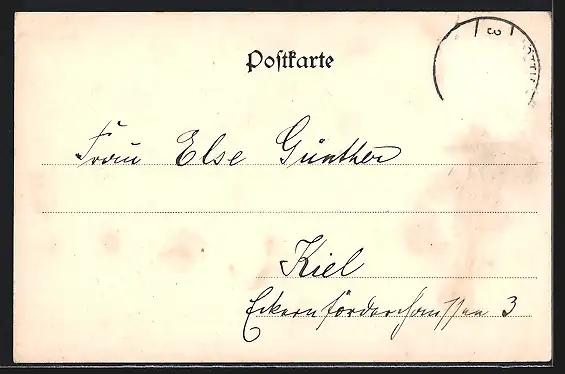 Postkarte
8
Frau Else Günther
Kiel
Eckernförderchaussee 3